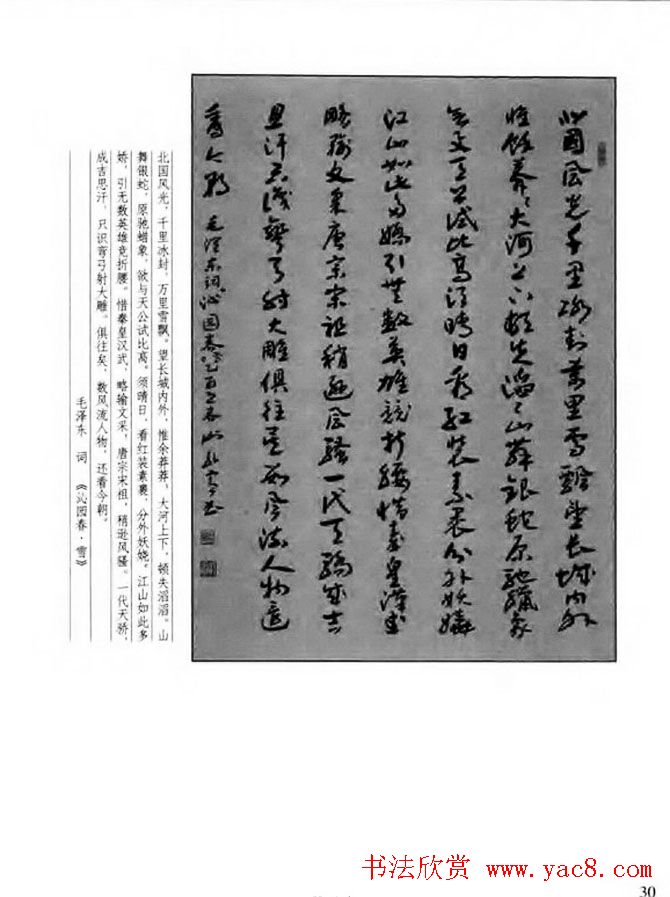 北國風光千里冰封萬里雪飄望長城內外
惟餘莽々大河上下頓失滔々山舞銀蛇原馳蠟象
欲與天公試比高須晴日看紅裝素裹分外妖嬈
江山如此多嬌引無數英雄競折腰惜秦皇漢武
略輸文采唐宗宋祖稍遜風騷一代天驕成吉
思汗只識彎弓射大雕俱往矣數風流人物還
看今朝 毛澤東詞沁園春
北国风光，千里冰封，万里雪飘。望长城内外，惟余莽莽，大河上下，顿失滔滔。山
舞银蛇，原驰蜡象，欲与天公试比高。须晴日，看红装素裹，分外妖娆。江山如此多
娇，引无数英雄竞折腰。惜秦皇汉武，略输文采，唐宗宋祖，稍逊风骚。一代天骄，
成吉思汗，只识弯弓射大雕。俱往矣，数风流人物，还看今朝。
毛泽东 词 《沁园春·雪》
书法欣赏 www.yac8.com
30